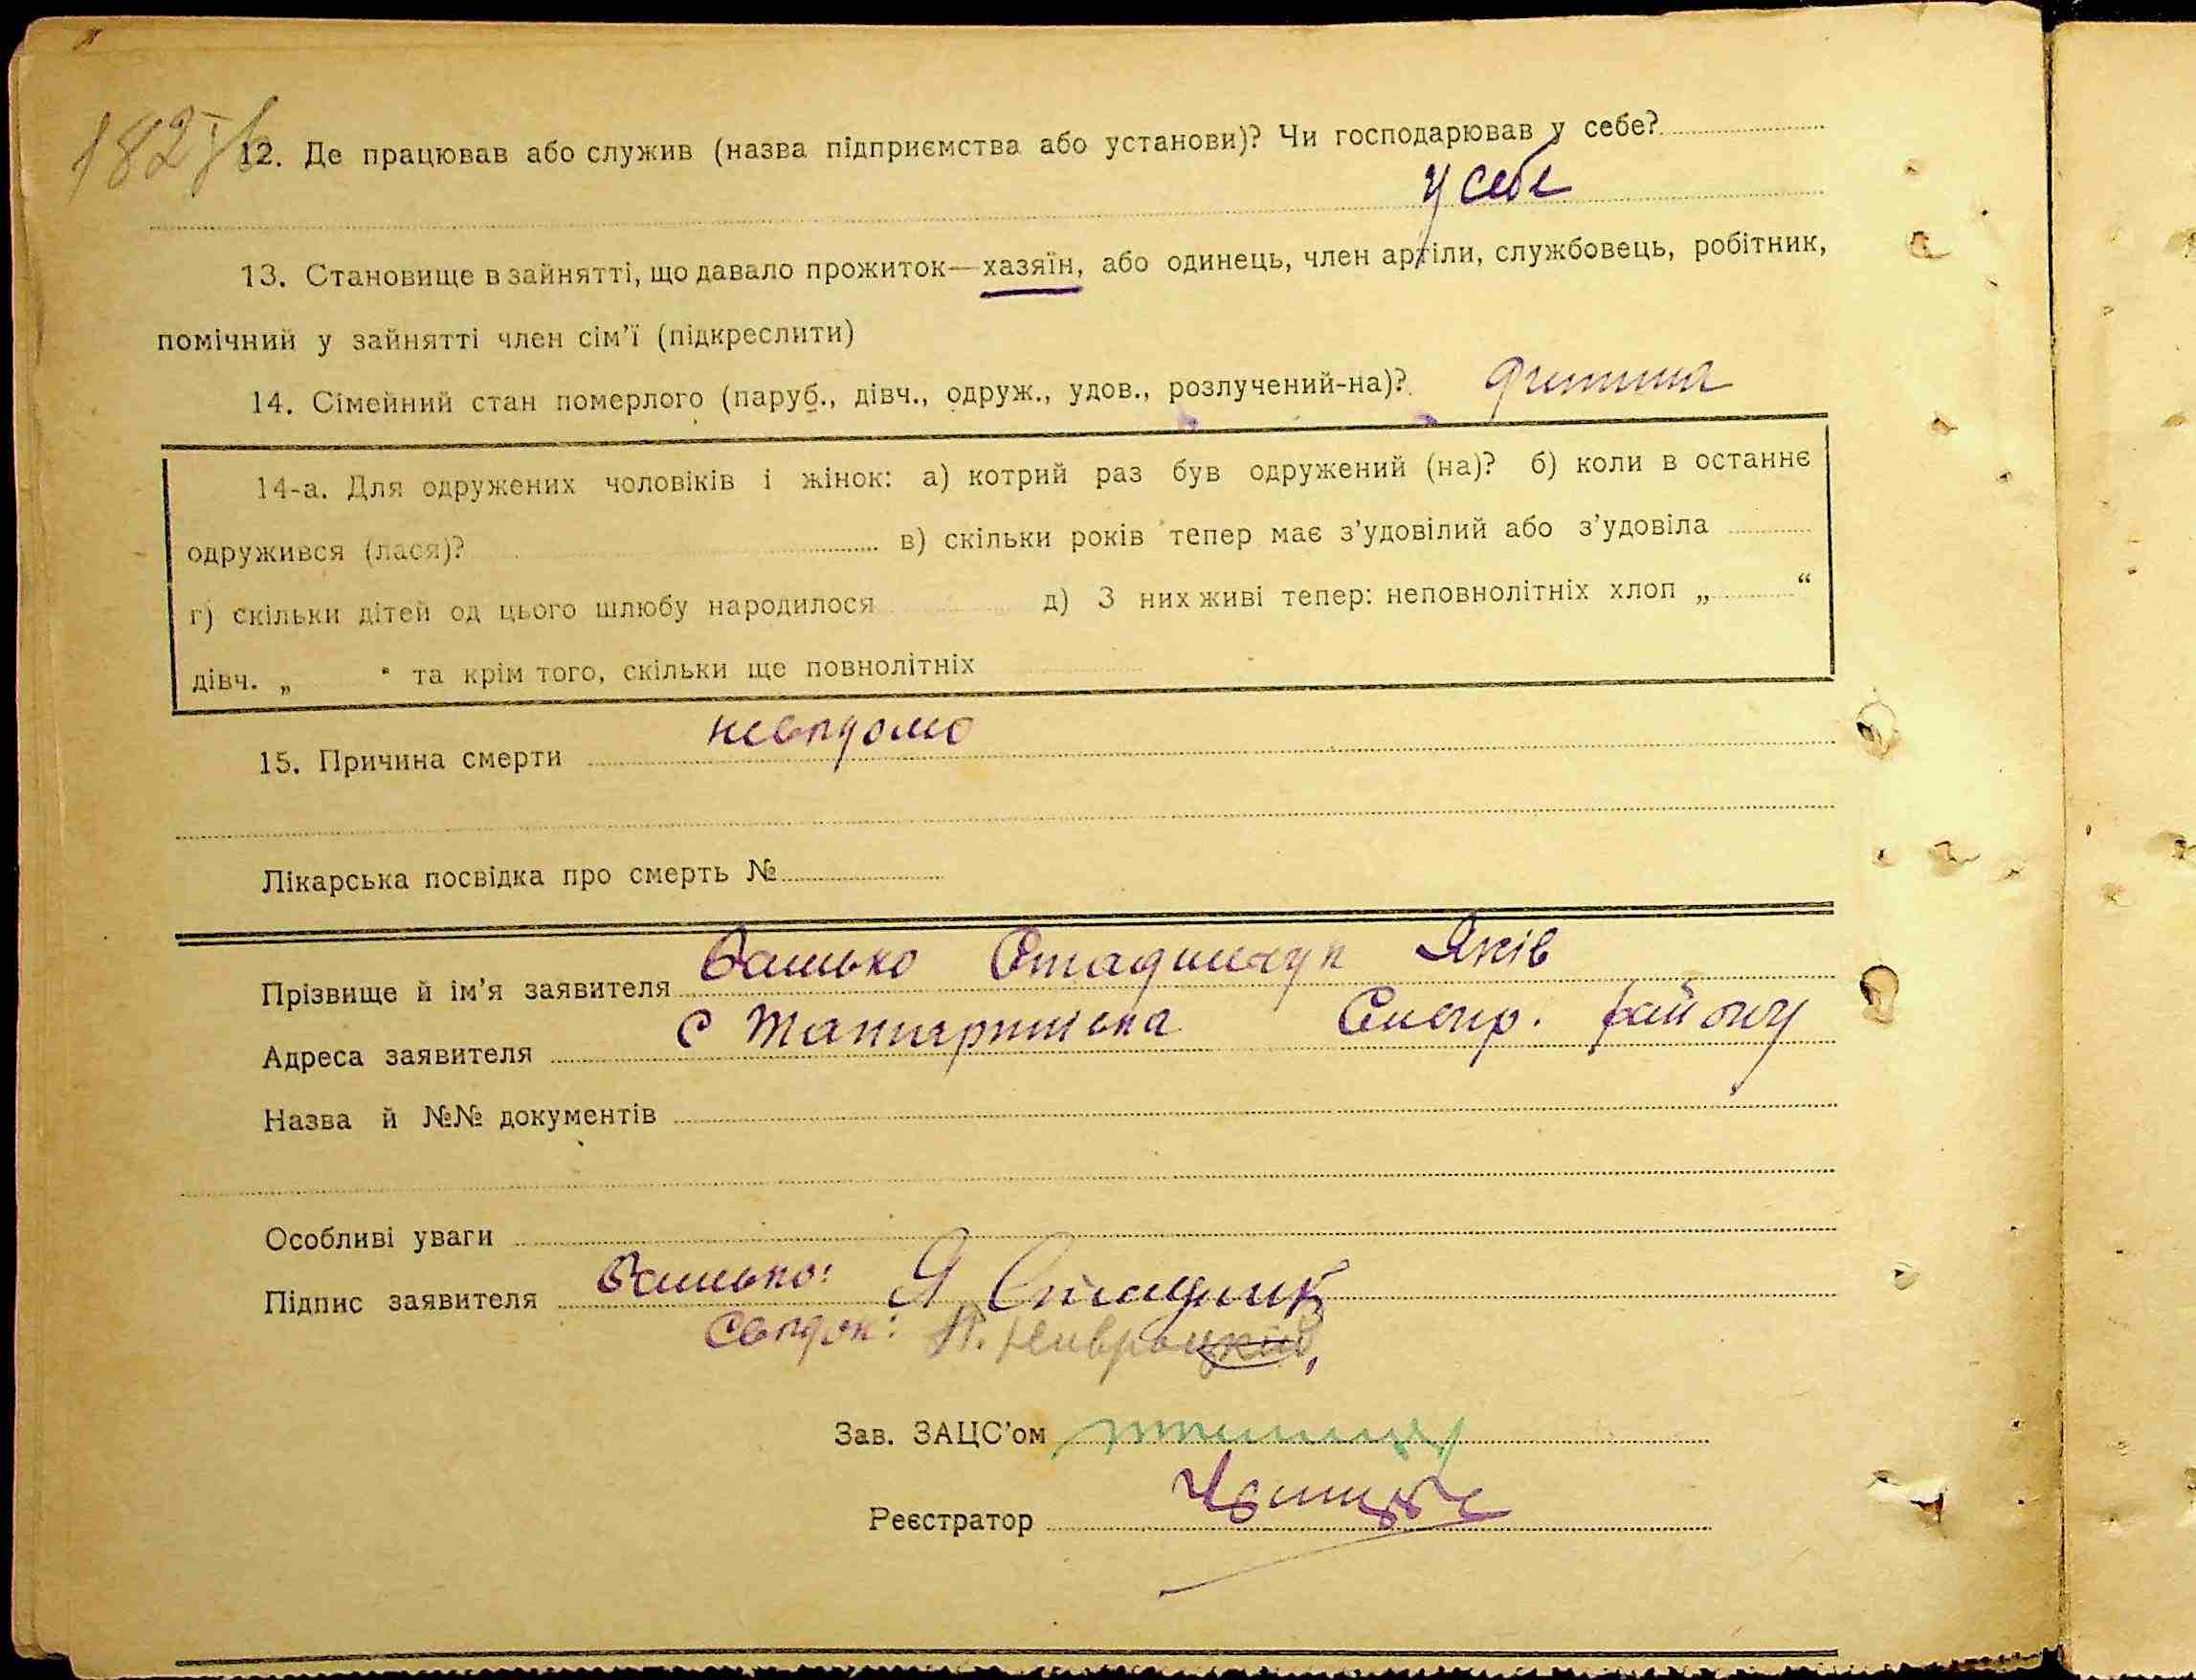 12. Де працював або служив (назва підприємства або установи)? Чи господарював у себе?
у себе
13. Становище в зайнятті, що давало прожиток—хазяїн, або одинець, член артіли, службовець, робітник,
помічний у зайнятті член сім’ї (підкреслити)
14. Сімейний стан померлого (паруб., дівч., одруж., удов., розлучений-на)? дитина
14-а. Для одружених чоловіків і жінок: а) котрий раз був одружений (на)? б) коли в останнє
одружився (лася)? в) скільки років тепер має з’удовілий або з’удовіла
г) скільки дітей од цього шлюбу народилося д) З них живі тепер: неповнолітніх хлоп „ “
дівч. „ “ та крім того, скільки ще повнолітніх
15. Причина смерти невідомо
Лікарська посвідка про смерть №
Прізвище й ім’я заявителя Батько Стадничук Яків
Адреса заявителя с району
Назва й №№ документів
Особливі уваги
Підпис заявителя Батько: Я Стадник
Свідок:
Зав. ЗАЦС’ом
Реєстратор